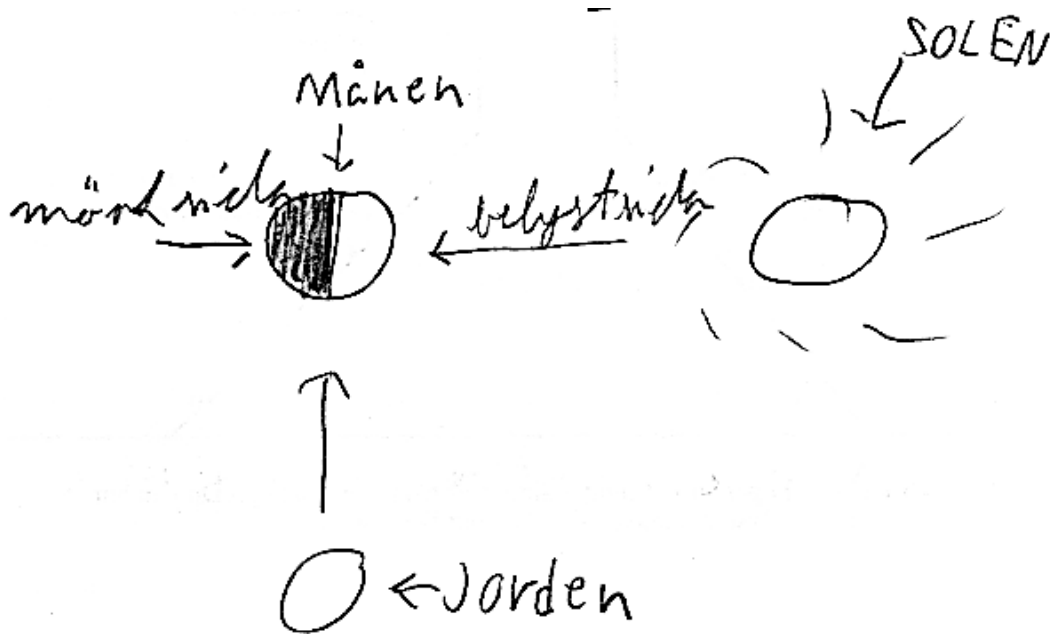 SOLEN
Månen
mörk sida
belyst sida
Jorden